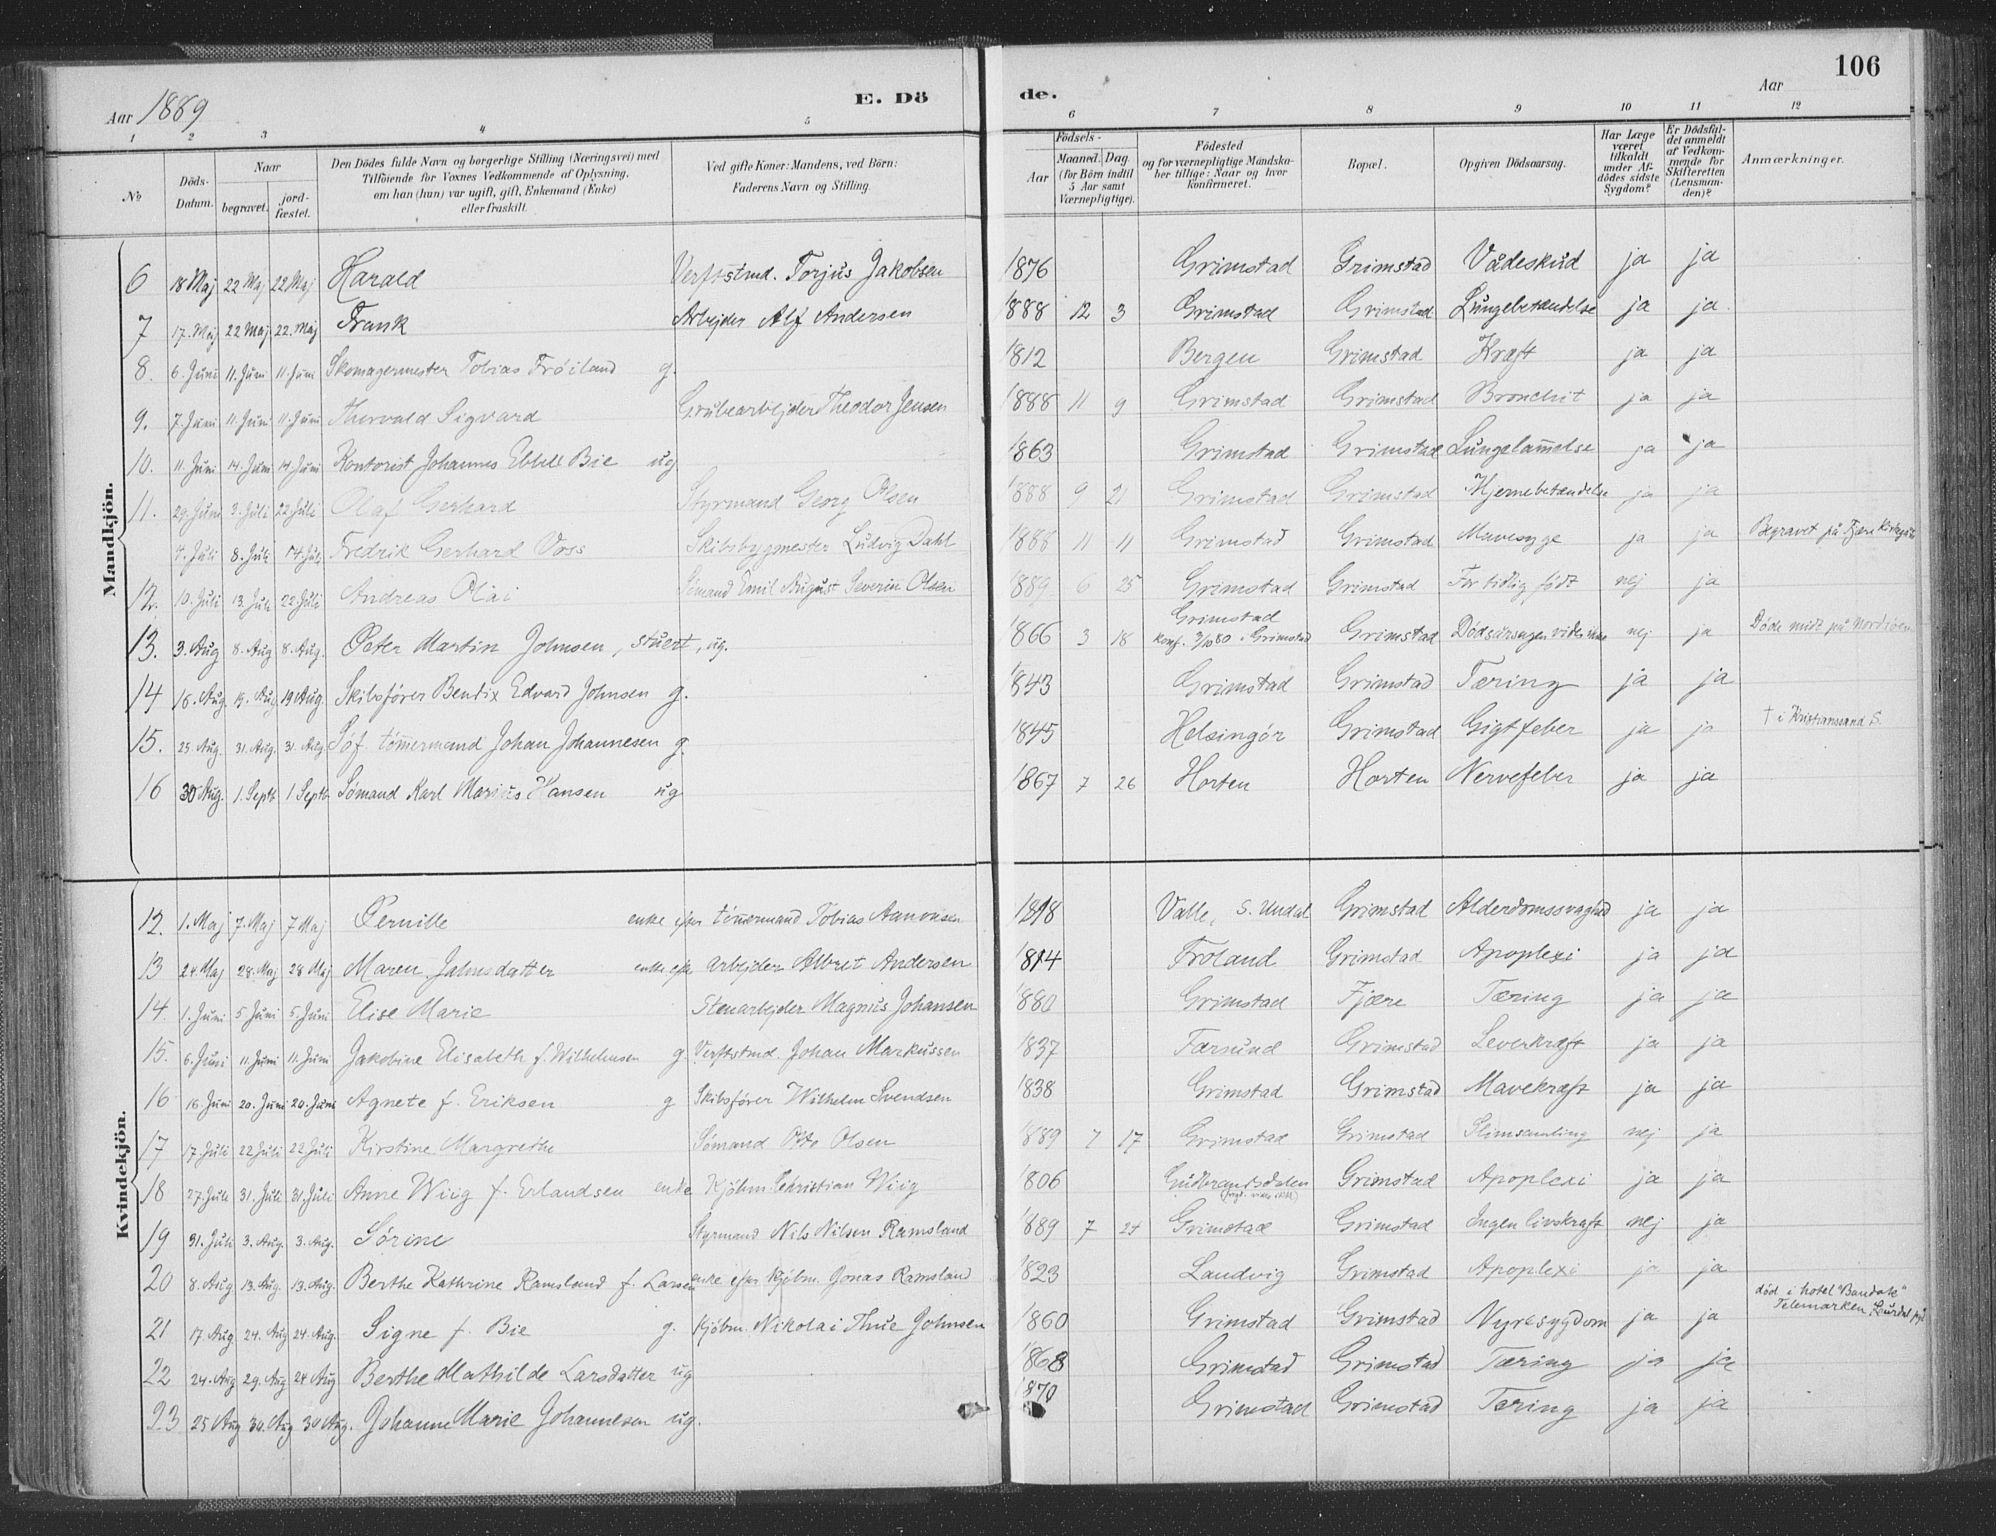 Aar 1889
E. Dö
de.
Aar
106
1 2 3 4 5 6 7 8 9 10 11 12
No
Döds-Datum.
Naar begravet. jord-fæstet.
Den Dödes fulde Navn og borgerlige Stilling (Næringsvei) med Tilföiende for Voxnes Vedkommende af Oplysning, om han (hun) var ugift, gift, Enkemand (Enke) eller fraskilt.
Ved gifte Koner: Mandens, ved Börn: Faderens Navn og Stilling.
Födsels-
Aar
Maaned. Dag. (for Börn indtil 5 Aar samt Værnepligtige).
Födested og for værnepligtige Mandskaber tillige: Naar og hvor konfirmeret.
Bopæl.
Opgiven Dödsaarsag.
Har Læge været tilkaldt under Afdödes sidste Sygdom?
Er Dödsfaldet anmeldt af Vedkommende for Skifteretten (Lensmanden)?
Anmærkninger.
Mandkjön.
6 18 Maj 22 Maj 22 Maj Harald Verftstmd. Torjus Jakobsen 1876 Grimstad Grimstad Vådeskud ja ja
7 17. Maj 22 Maj 22. Maj Frank Arbejder Alf Andersen 1888 12 3 Grimstad Grimstad Lungebetændelse ja ja.
8. 6. Juni 11. Juni 11. Juni Skomagermester Tobias Frøiland g. 1812 Bergen Grimstad Kræft ja ja
9. 7. Juni 11. Juni 11. Juni Thorvald Sigvard Grubearbejder Theodor Jensen 1888 11 9 Grimstad Grimstad Bronchit ja ja
10. 11. Juni 14. Juni 14. Juni Kontorist Johannes Ebbell Bie ug 1863 Grimstad Grimstad Lungelammelse ja ja
11. 29. Juni 3. Juli 22. Juli Olaf Gerhard Styrmand Georg Olsen 1888 9 21 Grimstad Grimstad Hjernebetændelse ja ja
4. Juli 8. Juli 14. Juli Fredrik Gerhard Voss Skibsbygmester Ludvig Dahl 1888 11 11 Grimstad Grimstad Mavesyge ja ja Begravet på Fjære
12. 10. Juli 13. Juli 22. Juli Andreas Olai Sömand Emil August Severin Olsen 1889 6 25 Grimstad Grimstad For tidlig födt nej ja
13. 3. Aug 8. Aug 8. Aug. Peter Martin Johnsen, stuert, ug. 1866 3 18 Grimstad konf. 3/10 80 i Grimstad Grimstad Dödsårsagen vides ikke nej ja Døde midt på Nordsøen
14 16. Aug 19. Aug 19 Aug. Skibsfører Bendix Edvard Johnsen g. 1843 Grimstad Grimstad Tæring ja ja
15. 25. Aug. 31. Aug. 31. Aug. Søf. tömmermand Johan Johannesen g. 1845 Helsingør Grimstad Gigtfeber ja ja † i Kristianssand S.
16 30 Aug. 1. Septb 1 Septb Sømand Karl Marius Hansen ug 1867 7 26 Horten Horten Nervefeber ja ja
Kvindekjön.
12. 1. Maj 7. Maj 7 Maj Pernille enke efter tömmermand Tobias Aanonsen 1818 Valle, S. Undal Grimstad Alderdomssvaghed ja ja
13 24. Maj 28. Maj 28 Maj Maren Jahnsdatter enke efter arbejder Albret Andersen 1814 Froland Grimstad Apoplexi ja ja
14. 1. Juni 5. Juni 5. Juni Elise Marie Stenarbejder Magnus Johansen 1880 Grimstad Fjære Tæring ja ja
15. 6. Juni 11. Juni 11. Juni Jakobine Elisabeth f. Wilhelmsen g Verftstmd. Johan Markussen 1837 Farsund Grimstad Leverkræft ja ja
16 16. Juni 20. Juni 20. Juni Agnete f. Eriksen g Skibsfører Wilhelm Svendsen 1838 Grimstad Grimstad Mavekræft ja ja
17 17. Juli 22 Juli 22 Juli Kirstine Margrethe Sömand Otto Olsen 1889 7 17 Grimstad Grimstad Slimsamling nej ja
18 27. Juli 31. Juli 31. Juli Anne Wiig f. Erlandsen enke Kjöbm. Christian Wiig 1806 Gudbrandsdalen Grimstad Apoplexi ja ja
19 31. Juli 3. Aug. 3. Aug. Sørine Styrmand Nils Nilsen Ramsland 1889 7 24 Grimstad Grimstad Ingen livskraft nej ja
20 8. Aug 13. Aug 13. Aug. Berthe Kathrine Ramsland f. Larsen enke efter Kjöbm. Jonas Ramsland 1823 Landvig Grimstad Apoplexi ja ja
21 17. Aug 24. Aug 24. Aug. Signe f. Bie g. Kjöbm. Nikolai Thue Johnsen 1860 Grimstad Grimstad Nyresygdom ja ja död i hotel "Bandak" Telemarken, Laurdal
22 24. Aug 29. Aug 24 Aug Berthe Mathilde Larsdatter ug 1868 Grimstad Grimstad Tæring ja ja
23 25 Aug 30. Aug 30 Aug. Johanne Marie Johannesen ug. 1870 Grimstad Grimstad Tæring ja ja